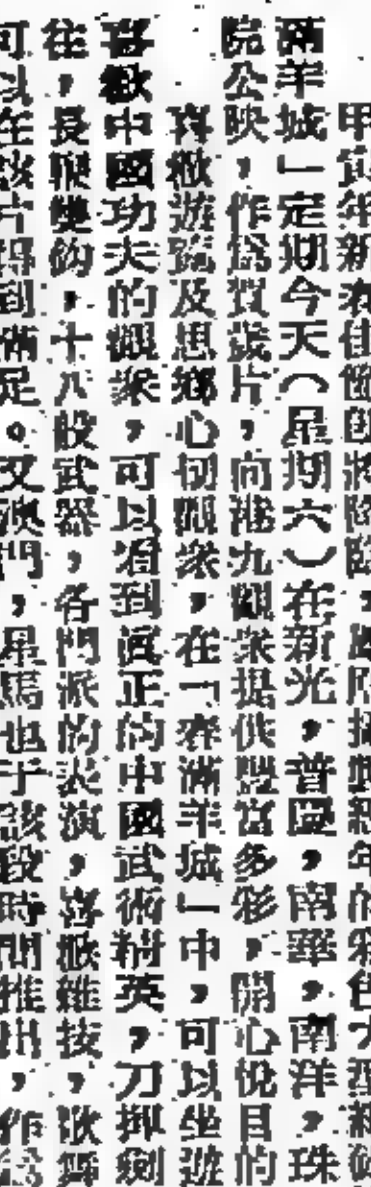 甲寅年新春佳節即將降臨，
滿羊城」定期今天（星期六）在新光，普慶，南華，南洋，珠
院公映，作為賀歲片，向港九觀眾提供豐富多彩，開心悅目的
喜歡遊覽及思鄉心切觀眾，在「春滿羊城」中，可以坐遊
喜歡中國功夫的觀眾，可以看到真正的中國武術精英，刀槍劍
往，長鞭雙鈎，十八般武器，各門派的表演，喜歡雜技，歌舞
可以在該片得到滿足。又澳門，星馬也于該段時間推出，作為